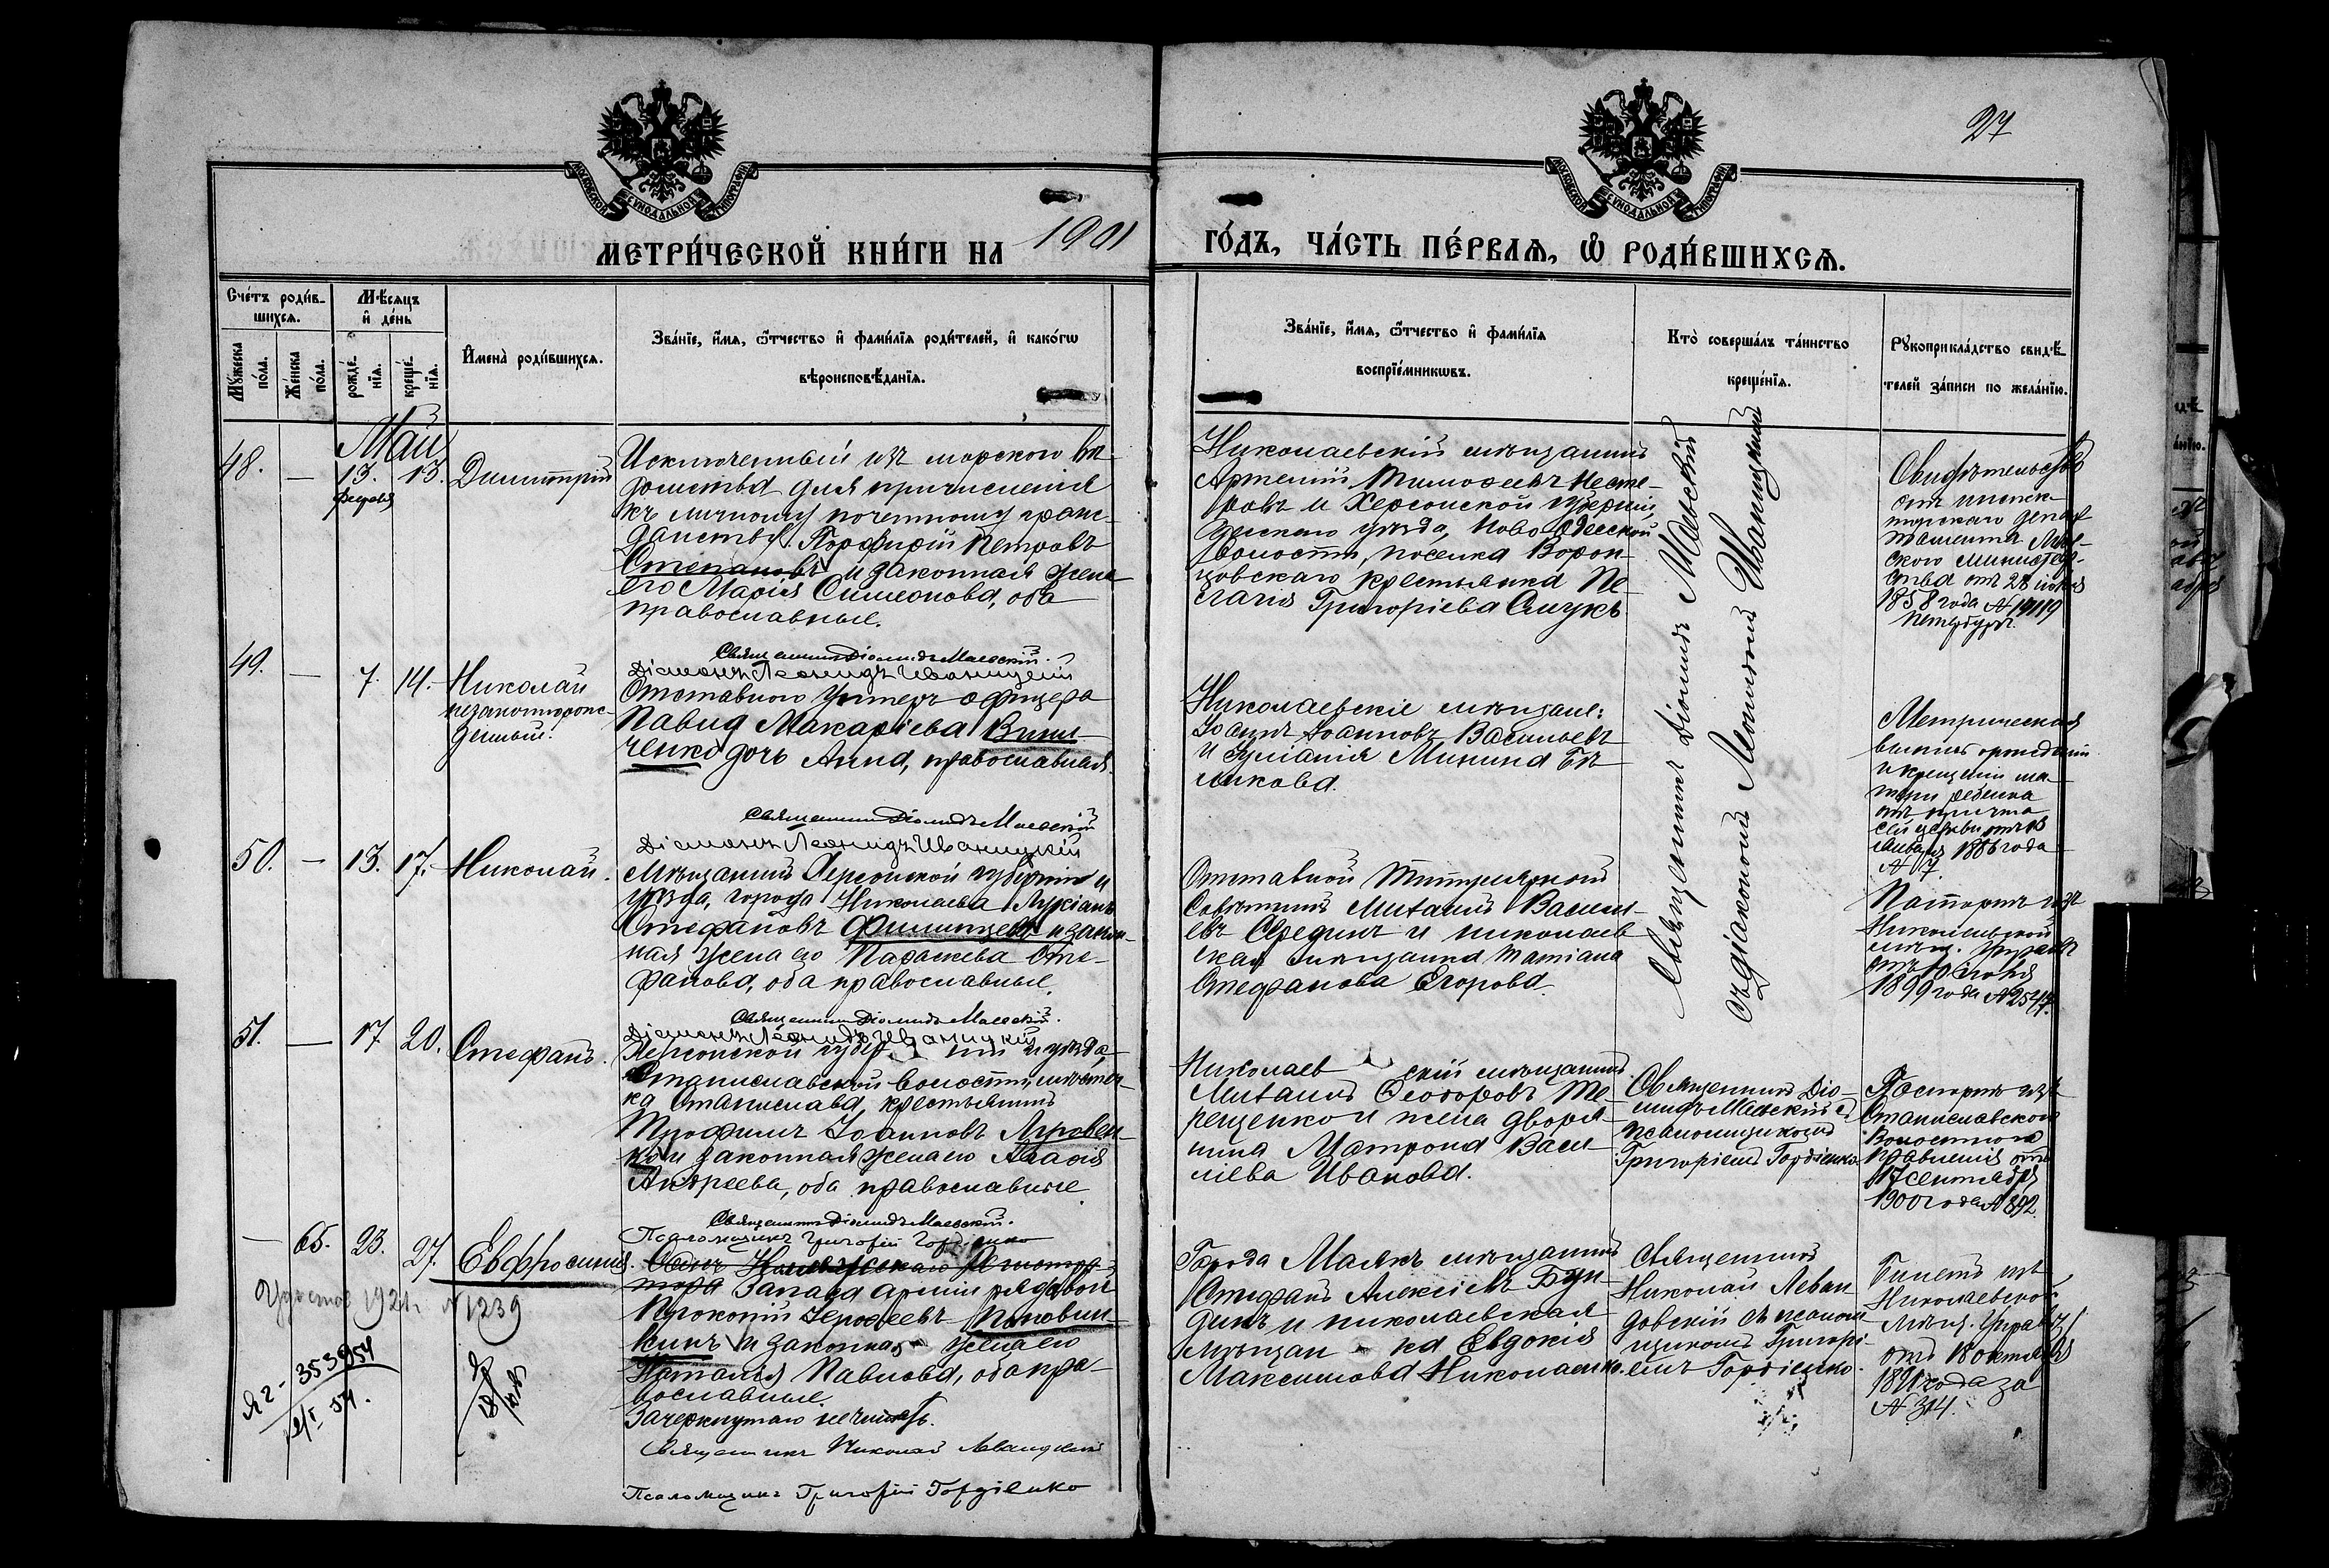 27
МОСКОВСКОЙ СѴНОДАЛЬНОЙ ТИПОГРАФІИ
МОСКОВСКОЙ СѴНОДАЛЬНОЙ ТИПОГРАФІИ
МЕТРИ́ЧЕСКОЙ КНИ́ГИ НА 1901
ГО́ДЪ, ЧА́СТЬ ПЕ́РВАѦ, Ѽ РОДИ́ВШИХСѦ.
Сче́тъ роди́в-
шихсѧ.
Мѣ́сѧцъ
и҆ де́нь
Мꙋ́жеска
по́ла.
Же́нска
по́ла.
рожде́-
нїѧ.
креще́-
нїѧ.
И҆мена̀ роди́вшихсѧ.
Зва́нїе, и҆́мѧ, ѻ҆́тчество и҆ фами́лїѧ роди́телей, и҆ како́гѡ
вѣроисповѣ́данїѧ.
Зва́нїе, и҆́мѧ, ѻ҆́тчество и҆ фами́лїѧ
воспрїе́мникѡвъ.
Кто̀ соверша́лъ та́инство
креще́нїѧ.
Рꙋкоприкла́дство свидѣ́-
телей за́писи по жела́нїю.
Май
48. — 13. 13. Димитрій
февраля
Исключенный изъ морского вѣ-
домства для причисленія
къ личному почетному граж-
данству Порфирій Петровъ
Степановъ и законная жена
его Марія Симеонова, оба
православные.
Николаевскій мѣщанинъ
Артемій Тимофеевъ Несте-
ровъ и Херсонской губерніи,
Одесскаго уѣзда, Ново Одесской
волости, поселка Ворон-
цовскаго крестьянка Пе-
лагія Григоріева Сичукъ
Свидѣтельство
отъ инспек-
торскаго депар-
тамента Мор-
ского Министер-
ства отъ 28 іюня
1858 года № 19119
Петербургъ.
Священникъ Діомидъ Маевскій.
Діаконъ Леонидъ Иваницкій
49. — 7. 14. Николай
незаконнорож-
денный.
Отставного Унтеръ офицера
Павла Макаріева Винни-
ченко дочь Анна, православная.
Николаевскіе мѣщане:
Іоаннъ Іоанновъ Васильевъ
и Іуліанія Минина Бѣ-
ликова.
Метрическая
выпись о рожденіи
и крещеніи ма-
тери ребенка
отъ причта
сей церкви отъ 13
января 1886 года
№ 7.
Священникъ Діомидъ Маевскій
Діаконъ Леонидъ Иваницкій
50. — 13. 17. Николай.
Мѣщанинъ Херсонской губерніи и
уѣзда, города Николаева Лукіанъ
Стефановъ Филипцевъ и закон-
ная жена его Параскева Сте-
фанова, оба православные.
Отставной Титулярный
Совѣтникъ Михаилъ Василь-
евъ Серединъ и николаев
ская мѣщанка Татіана
Стефанова Егорова.
Паспортъ изъ
Николаевской
мѣщ. Управы
отъ 10 іюня
1899 года № 2547.
Священникъ Діомидъ Маевскій
Съ діакономъ Леонидомъ Иваницкимъ
Священникъ Діомидъ Маевскій.
Діаконъ Леонидъ Иваницкій
51. — 17 20. Стефанъ.
Херсонской губерніи и уѣзда,
Станиславской волости, мѣстеч-
ка Станислава, крестьянинъ
Трофимъ Іоанновъ Яровен-
ко и законная жена его Агафія
Андреева, оба православные
Николаевскій мѣщанинъ
Михаилъ Ѳеодоровъ Те-
рещенко и жена дворя-
нина Матрона Васи-
ліева Иванова.
Священникъ Діо-
мидъ Маевскій съ
псаломщикомъ
Григоріемъ Гордіенко
Паспортъ изъ
Станиславскаго
Волостного
Правленія отъ
17 сентября
1900 года № 892.
Священникъ Діомидъ Маевскій.
Псаломщикъ Григорій Гордіенко
— 65. 23. 27. Евфросинія.
Запаса арміи рядовой
Прокопій Іерофеевъ Половин-
кинъ и законная жена его
Наталія Павлова, оба пра-
вославные.
Зачеркнутаго не читать.
Города Маякъ мѣщанинъ
Стефанъ Алексіевъ Бун-
динъ и николаевская
мѣщанка Евдокія
Максимова Николаенко.
Священникъ
Николай Леван
довскій съ псалом
щикомъ Григорі-
емъ Гордіенко.
Билетъ изъ
Николаевской
Мѣщ. Управы
отъ 18 октября
1891 года за
№ 314.
1921 г. № 1239
Яг - 353954
Священникъ Николай Левандовскій
Псаломщикъ Григорій Гордіенко